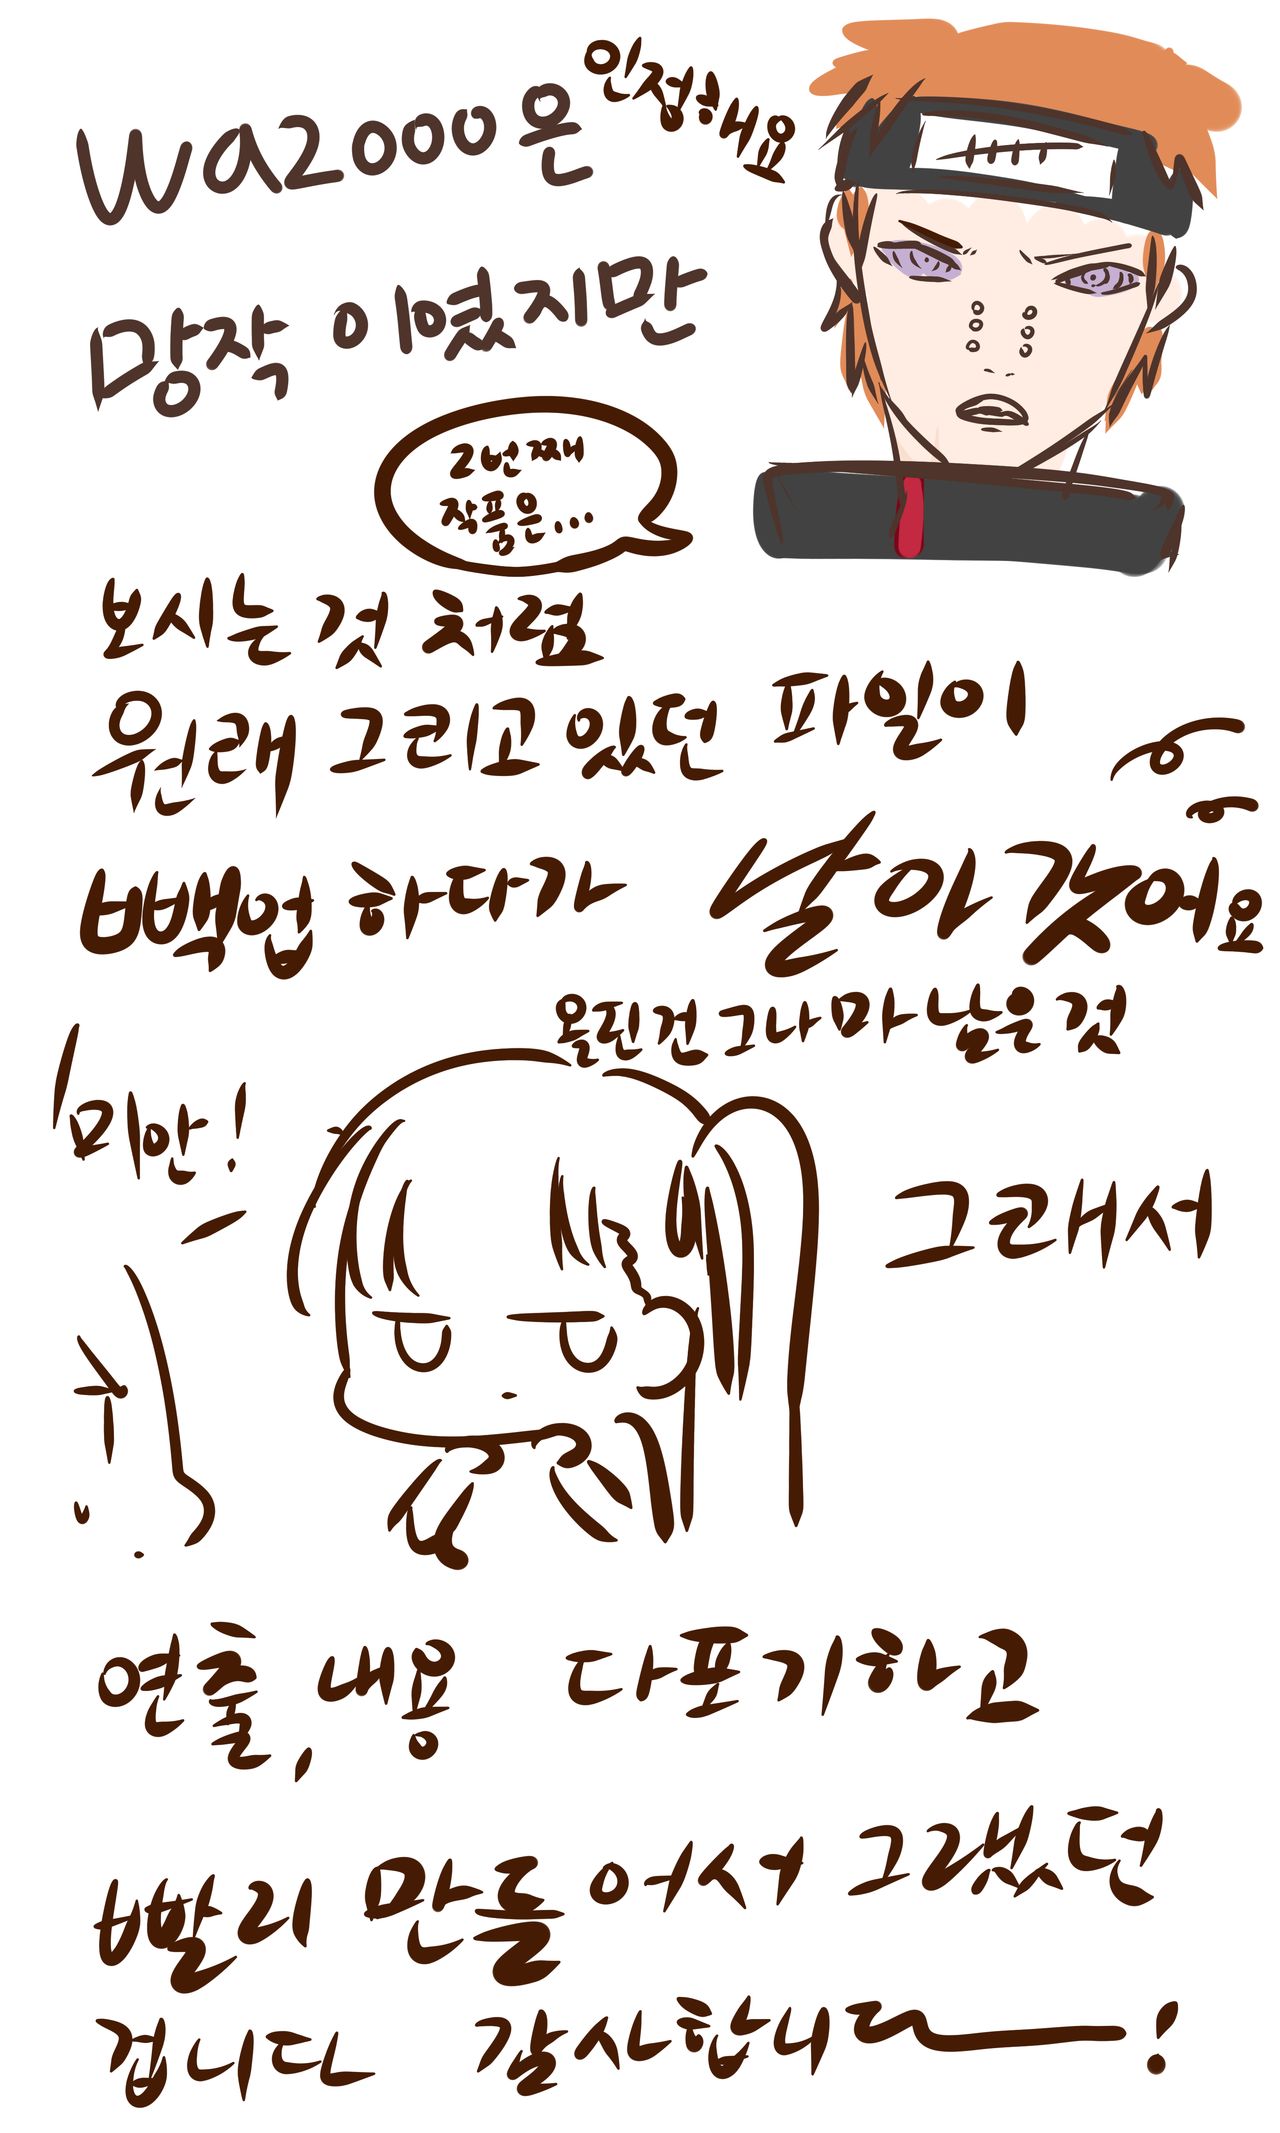 Wa2000은
인정해요
망작 이였지만
2번째
작품은...
보시는 것 처럼
원래 그리고 있던 파일이
빽업 하다가 날아갔어요
올린건 그나마 남은 것
미안!
그래서
연출, 내용 다포기하고
빨리 만들어서 그랬던
겁니다 감사합니다!